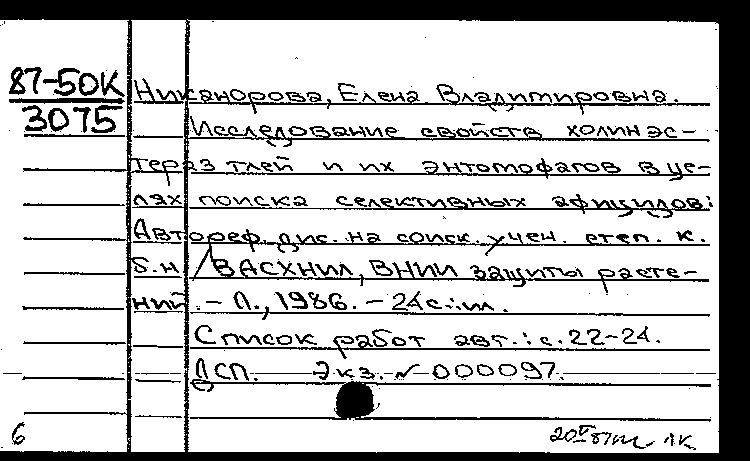 87-50К
3075
Никанорова, Елена Владимировна.
Исследование свойств холинэс-
тераз тлей и их энтомофагов в це-
лях поиска селективных афицидов:
Автореф. дис. на соиск. учен. степ. к.
б.н. / ВАСХНИЛ, ВНИИ защиты расте-
ний. - Л., 1986. - 24с.:ил.
Список работ авт.: с.22-24.
ДСП. Экз. № 000097.
6